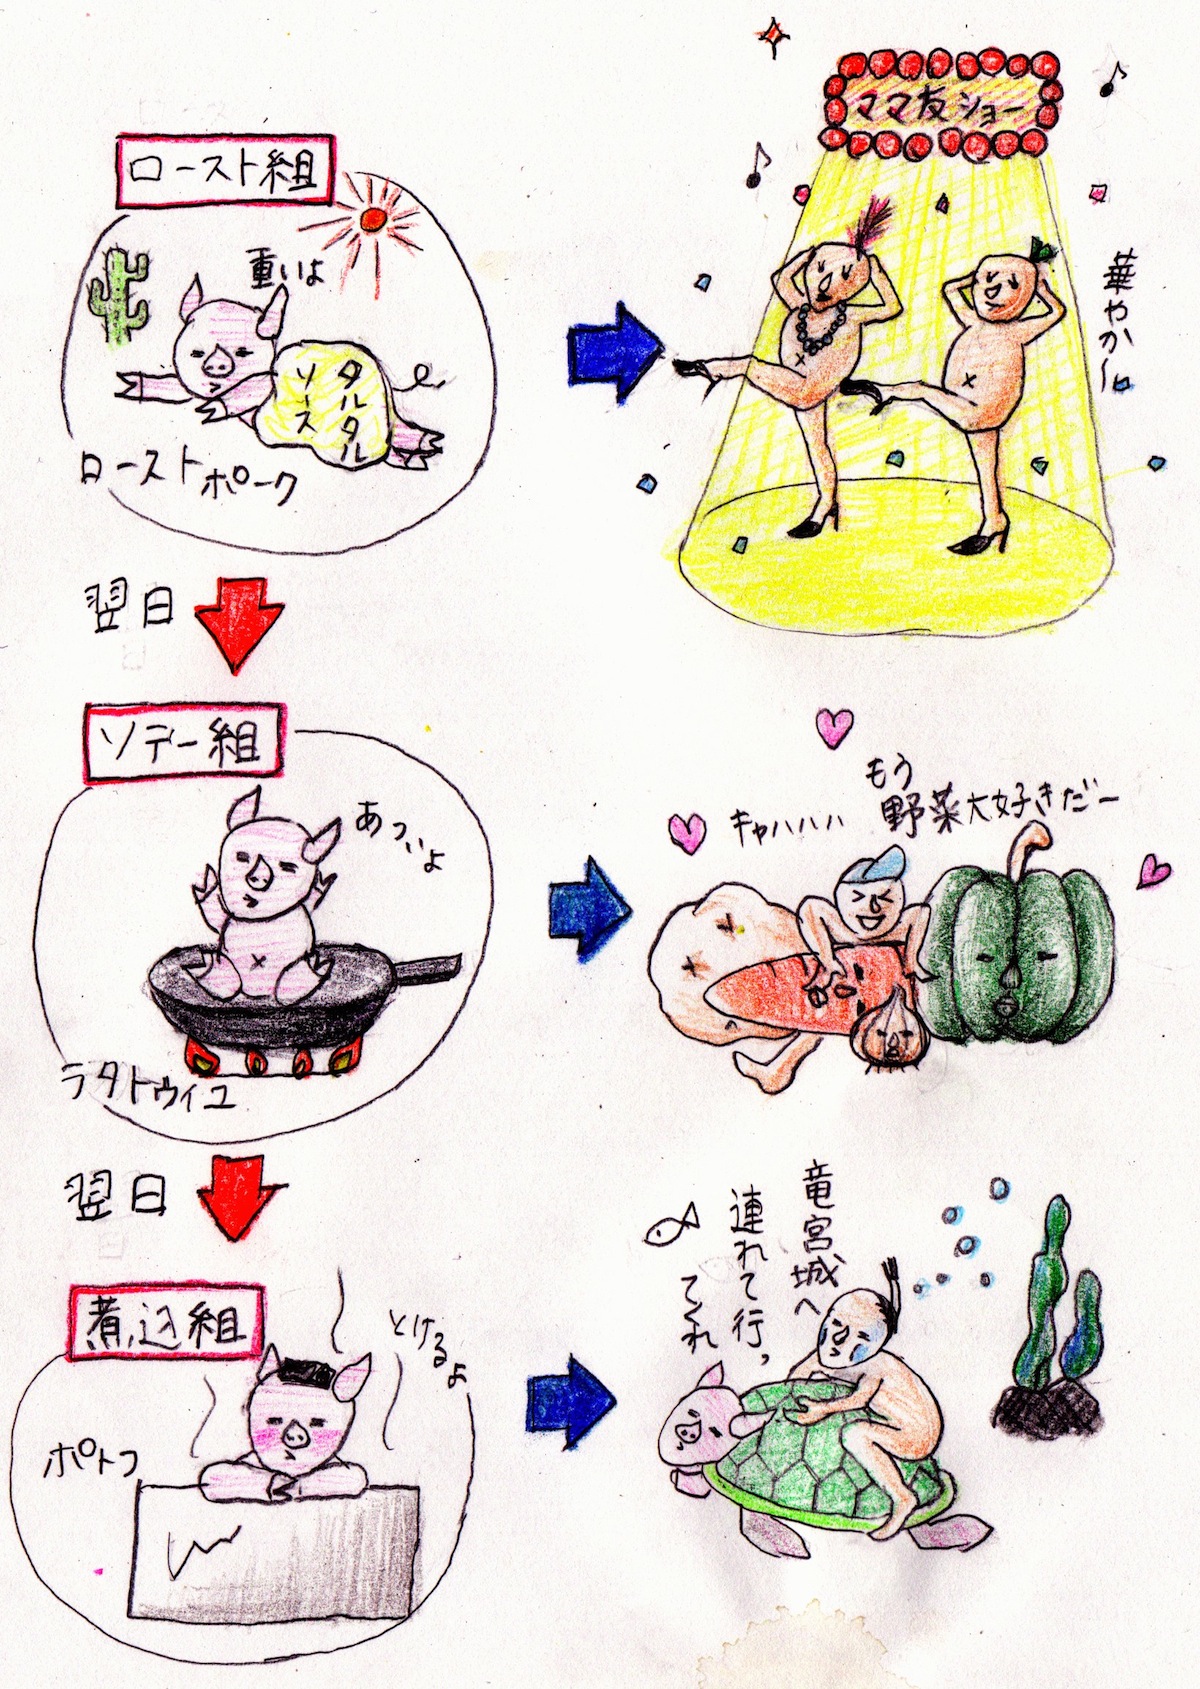 ロースト組
重いよ
タルタル
ソース
ローストポーク
ママ友ショー
華やか〜
翌日
ソテー組
あついよ
ラタトゥイユ
キャハハハ
もう
野菜大好きだー
翌日
煮込組
とけるよ
ポトフ
竜宮城へ
連れて行っ
てくれ